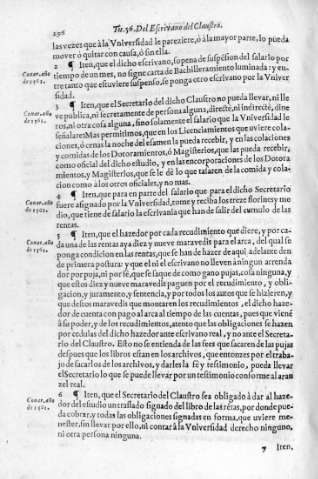 296 Tit. 36. Del Escrivano del Claustro.
las vezes que à la Vniversidad le pareziere, ò à la mayor parte, lo pueda
mover, ò quitar con causa, ò sin ella.
2 ¶ Iten, que el dicho escrivano, so pena de suspẽsion del salario por
tiempo de un mes, no signe carta de Bachilleramiento luminada: y en-
tre tanto que estuviere suspenso, se ponga otro escrivano por la Vniver
sidad.
3 ¶ Iten, el Secretario del dicho Claustro no pueda llevar, ni lle
ve publica, ni secretamente de persona alguna, directè, ni indirectè, dine
ros, ni otra cosa alguna, sino solamente el salario que la Vniversidad le
señalare. Mas permitimos, que en los Licenciamientos que uviere cola
ciones, ò cenas la noche del examen la pueda recebir, y en las colaciones
y comidas de los Dotoramientos, ò Magisterios, que las pueda recebir,
como oficial del dicho estudio, y en las encorporaciones de los Dotora
mientos, y Magisterios, que se le dè lo que tassaren de la comida y cola-
cion como a los otros oficiales, y no mas.
4 ¶ Iten, que para en parte del salario que para el dicho Secretario
fuere asignado por la Vniversidad, tome y reciba los treze florines y me
dio, que tiene de salario la escrivania que han de salir del cumulo de las
rentas.
5 ¶ Iten, que el hazedor por cada recudimiento que diere, y por ca-
da una de las rentas aya diez y nueve maravedis para el arca, del qual se
ponga condicion en las rentas, que se han de hazer de aqui adelante den
de primera postura: y que el ni el escrivano no lleven à ningun arrenda
dor por puja, ni por sè, que se saque de como gano pujas, cosa ninguna, y
que estos diez y nueve maravedis paguen por el recudimiento, y obli-
gacion, y juramento, y sentencia, y por todos los autos que se hizieren, y
que desos maravedis que montaren los recudimientos, el dicho haze-
dor de cuenta con pago al arca al tiempo de las cuentas, pues que viene
à su poder, y de los recudimientos, atento que las obligaciones se hazen
por cedulas del dicho hazedor ante escrivano real, y no ante el Secreta-
rio del Claustro. Esto no se entienda de las fees que sacaren de las pujas
despues que los libros estan en los archivos, que entonzes por el traba-
jo de sacarlos de los archivos, y darles la fè y testimonio, pueda llevar
el Secretario lo que se puede llevar por un testimonio conforme al aran
zel real.
6 ¶ Iten, que el Secretario del Claustro sea obligado à dar al haze-
dor del estudio un traslado signado del libro de las rẽtas, por donde pue-
da cobrar, y todas las obligaciones signadas en forma, que uviere me-
nester, sin llevar por ello, ni contar à la Vniversidad derecho ninguno,
ni otra persona ninguna.
7 Iten,